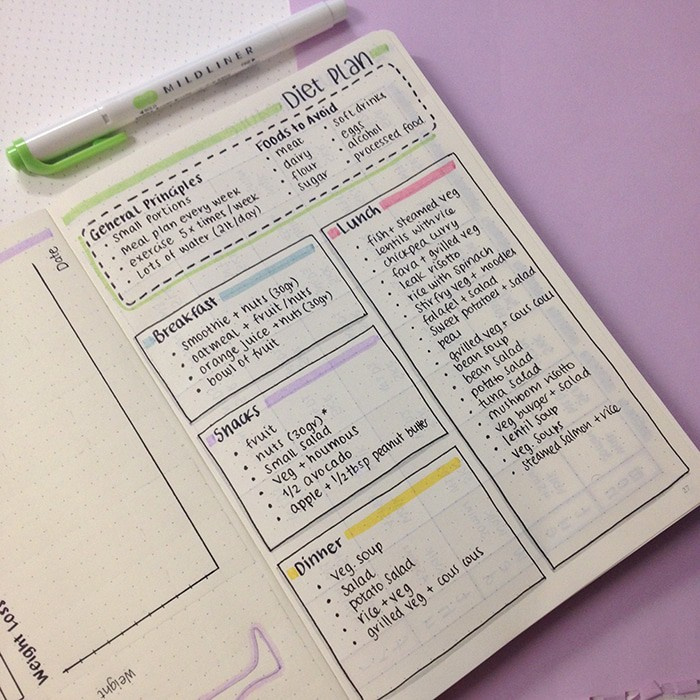 MILDLINER
Diet Plan
General Principles
• small portions
• meal plan every week
• exercise 5x times/week
• Lots of water (2lt/day)
Foods to Avoid
• meat
• dairy
• flour
• sugar
• soft drinks
• eggs
• alcohol
• processed food
Breakfast
• smoothie + nuts (30gr)
• oatmeal + fruit/nuts
• orange juice + nuts (30gr)
• bowl of fruit
Snacks
• fruit
• nuts (30gr)*
• small salad
• veg + houmous
• 1/2 avocado
• apple + 1/2tbsp peanut butter
Dinner
• veg. soup
• salad
• potato salad
• rice + veg
• grilled veg + cous cous
Lunch
• fish + steamed veg
• lentils with rice
• chickpea curry
• fava + grilled veg
• leak risotto
• rice with spinach
• stirfry veg + noodles
• falafel + salad
• sweet potatoe + salad
• peas
• grilled veg + cous cous
• bean soup
• bean salad
• potato salad
• tuna salad
• mushroom risotto
• veg burger + salad
• lentil soup
• veg. soups
• steamed salmon + rice
Date
Weight Loss
Weight